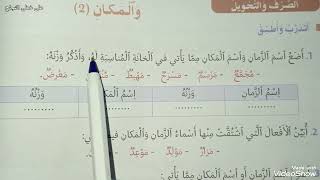 الصرف والتحويل
والمكان (2)
أتدرب وأطبق
1. أضع اسم الزمان واسم المكان مما يأتي في الخانة المناسبة له، وأذكر وزنه:
- مجمع - مرسم - مسرح - مهبط - معرض.
اسم الزمان وزنه اسم المكان وزنه
2. أبين الأفعال التي اشتقت منها أسماء الزمان والمكان الآتية:
- مزار - مولد - موعد -
الزمان أو اسم المكان مما يأتي:
Made with
VideoShow